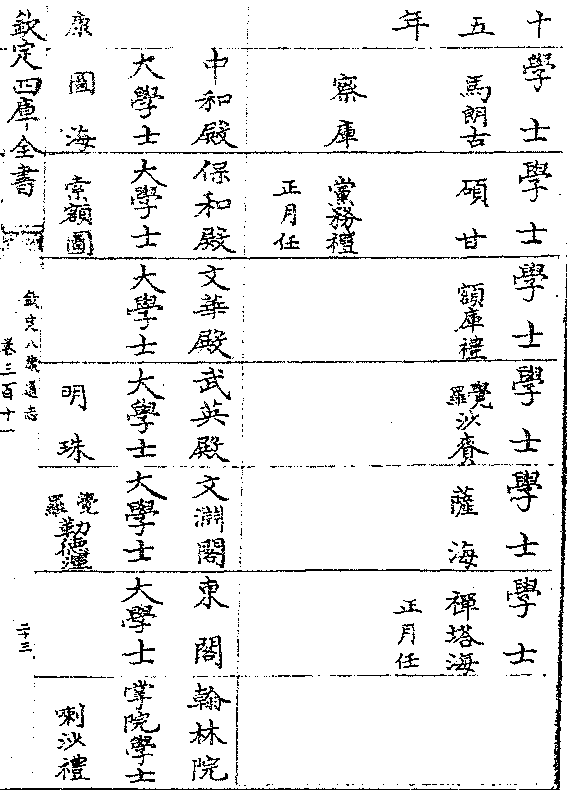 十五年
學士
學士
學士
學士
學士
學士
馬朗古
碩甘
額庫禮
覺羅沙賚
薩海
禪塔海
正月任
察庫
黨務禮
正月任
中和殿
保和殿
文華殿
武英殿
文淵閣
東閣
翰林院
大學士
大學士
大學士
大學士
大學士
大學士
掌院學士
康
圖海
索額圖
明珠
覺羅勒德
喇沙禮
欽定四庫全書
欽定八旗通志
卷三百十一
二十三